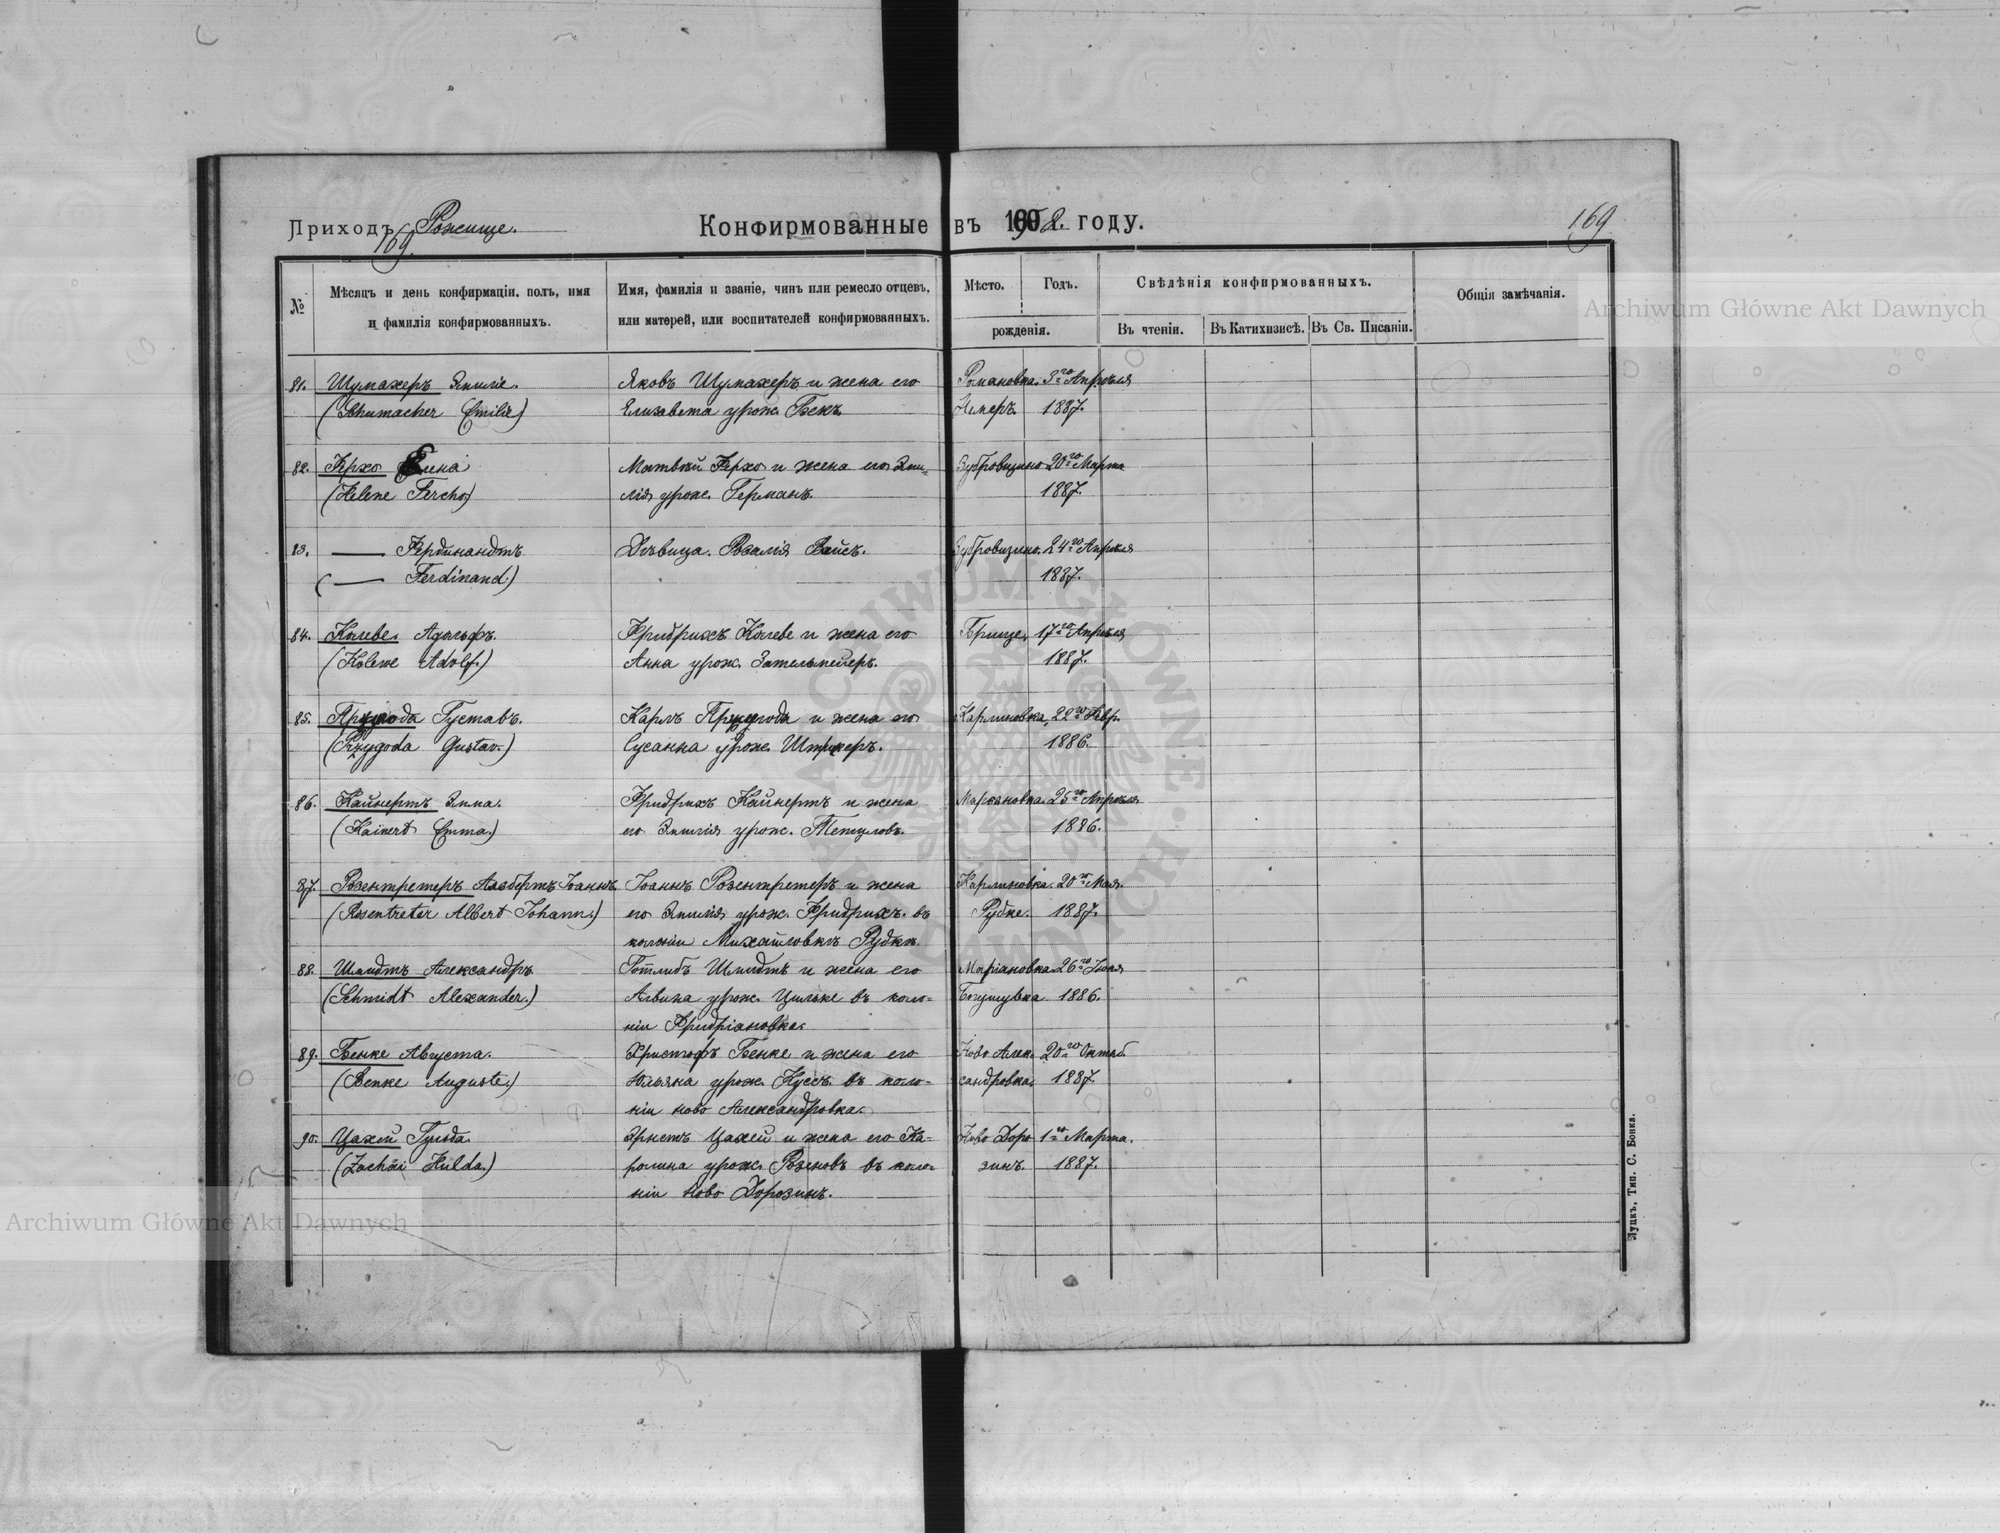 Приходъ Рожище.
169.
Конфирмованные въ 1902. году.
169
№
Мѣсяцъ и день конфирмаціи, полъ, имя
и фамилія конфирмованныхъ.
Имя, фамилія и званіе, чинъ или ремесло отцевъ,
или матерей, или воспитателей конфирмованныхъ.
Мѣсто.
Годъ.
рожденія.
Свѣдѣнія конфирмованныхъ.
Въ чтеніи.
Въ Катихизисѣ.
Въ Св. Писаніи.
Общія замѣчанія.
Archiwum Główne Akt Dawnych
81. Шумахеръ Эмилiе. Яковъ Шумахеръ и жена его Романовка. 3го Апрѣля
(Schumacher Emilie) Елизавета урож. Бекъ. 1887.
82. Ферхо Елена Матвѣй Ферхо и жена его Эми- 20го Марта
(Helene Fercho) лія урож. Германъ. 1887.
83. — Фердинандтъ Дѣвица. Розалія Вайсъ. 24го Апрѣля
(— Ferdinand) 1887.
84. Колеве. Адольфъ. Фридрихъ Колеве и жена его 17го Апрѣля
(Kolewe Adolf.) Анна урож. Зательмейеръ. 1887.
85. Пржигода Густавъ. Карлъ Пржигода и жена его Карлиновка, 22го Февр.
(Przygoda Gustav.) Сусанна урож. 1886.
86. Кайнертъ Эмма. Фридрихъ Кайнертъ и жена 25го Апрѣля
(Kainert Emma.) его Эмилія урож. Тетцловъ. 1886.
87. Розентретеръ Альбертъ Іоаннъ. Іоаннъ Розентретеръ и жена Карлиновка. 20го Мая.
(Rosentreter Albert Johann.) его Эмилія урож. Фридрихъ. въ Рудке. 1887.
колоніи Михайловкѣ
88. Шмидтъ Александръ Готлибъ Шмидтъ и жена его Маріановка 26го
(Schmidt Alexander.) Алвина урож. Цильке въ коло- 1886.
ніи Фридріановка.
89. Бенке Августа. Христофъ Бенке и жена его Ново Алек- 20го Октяб.
(Benke Auguste.) Юльяна урож. Куссъ. въ коло- сандровка. 1887.
ніи ново Александровка.
90. Цахей Гульда. Эрнстъ Цахей и жена его Ка- Ново Доро 1го Марта.
(Zachäi Hulda.) ролина урож. Розеновъ въ коло- зинъ. 1887.
ніи Ново Дорозинъ.
Archiwum Główne Akt Dawnych
Луцкъ, Тип. С. Бонка.
ARCHIWUM GŁÓWNE AKT DAWNYCH